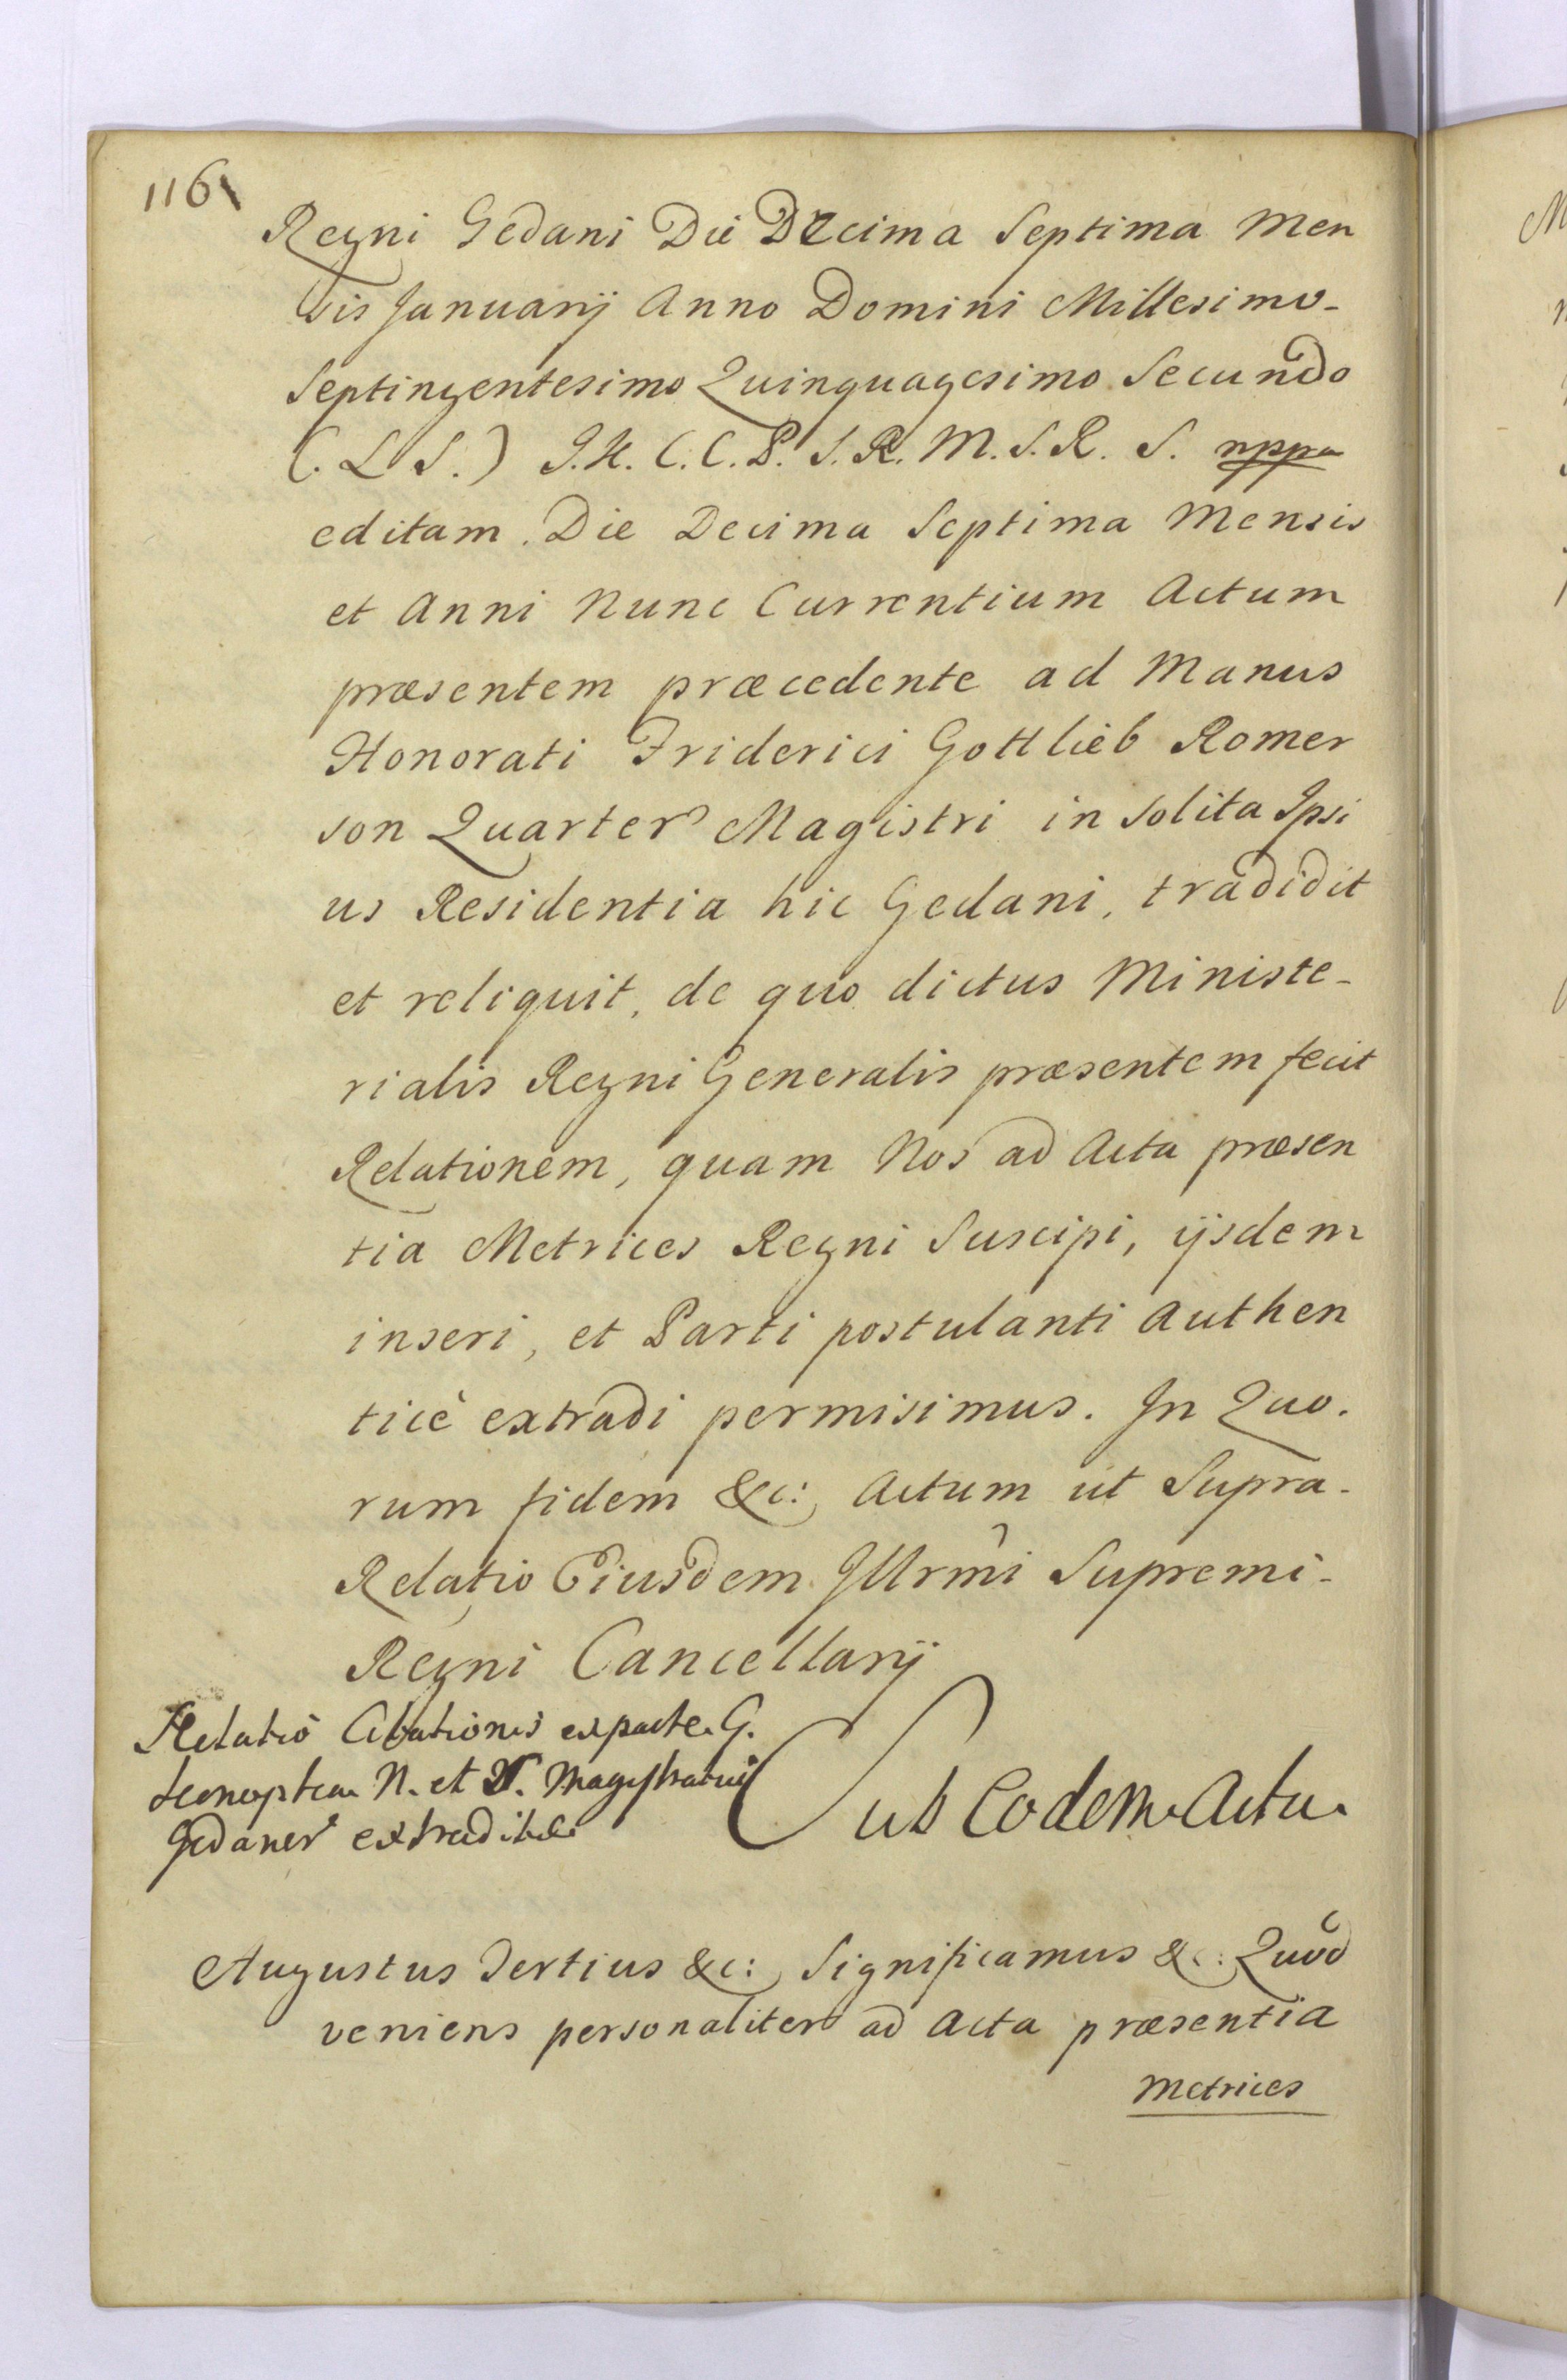 116
Regni Gedani Die Decima Septima Men
sis Januarij Anno Domini Millesimo-
Septingentesimo Quinquagesimo Secundo
(. L S.) J. H. C. C. P. S. R. M. S. R. S. mppa
editam. Die Decima Septima Mensis
et Anni Nunc Currentium Actum
præsentem præcedente ad Manus
Honorati Friderici Gottlieb Romer
son Quarter Magistri in Solita Ipsi
us Residentia hic Gedani, tradidit
et reliquit, de quo dictus Ministe-
rialis Regni Generalis præsentem fecit
Relationem, quam Nos ad Acta præsen
tia Metrices Regni Suscipi, ijsdem
inseri, et Parti postulanti Authen
ticè extradi permisimus. In Quo.
rum fidem &c: Actum ut Supra-
Relatio Eiusdem Illrmi Supremi-
Regni Cancellarij
Relatio Citationis ex parte G.
N. et N. Magistratui
Gedanen extraditæ
Sub Eodem Actu.
Augustus Tertius &c: Significamus &c: Quòd
veniens personaliter ad Acta præsentia
Metrices